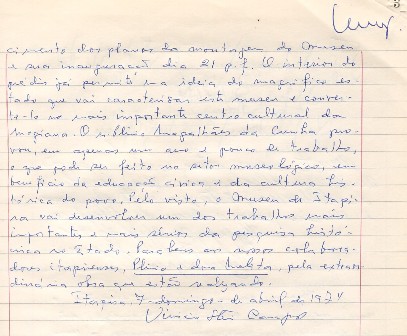 cimento dos planos da montagem do Museu
e sua inauguração dia 21 p.f. O interior do
prédio já permite uma ideia do magnífico es-
tado que vai caracterizar este museu e conver-
te-lo no mais importante centro cultural da
mogiana. O Magalhães da Cunha pro-
vou, em apenas um ano e pouco de trabalho,
o que pode ser feito no setor museológico, em
benefício da educação cívica e da cultura his-
tórica do povo. Pelo visto, o Museu de Itapi-
ra vai desenvolver um dos trabalhos mais
importantes e mais sérios da pesquisa histó-
rica no Estado. Parabens aos nossos colabora-
dores itapirenses, e dona, pela extraor-
dinária obra que estão realizando.
Itapira 7 - domingo - de abril de 1974